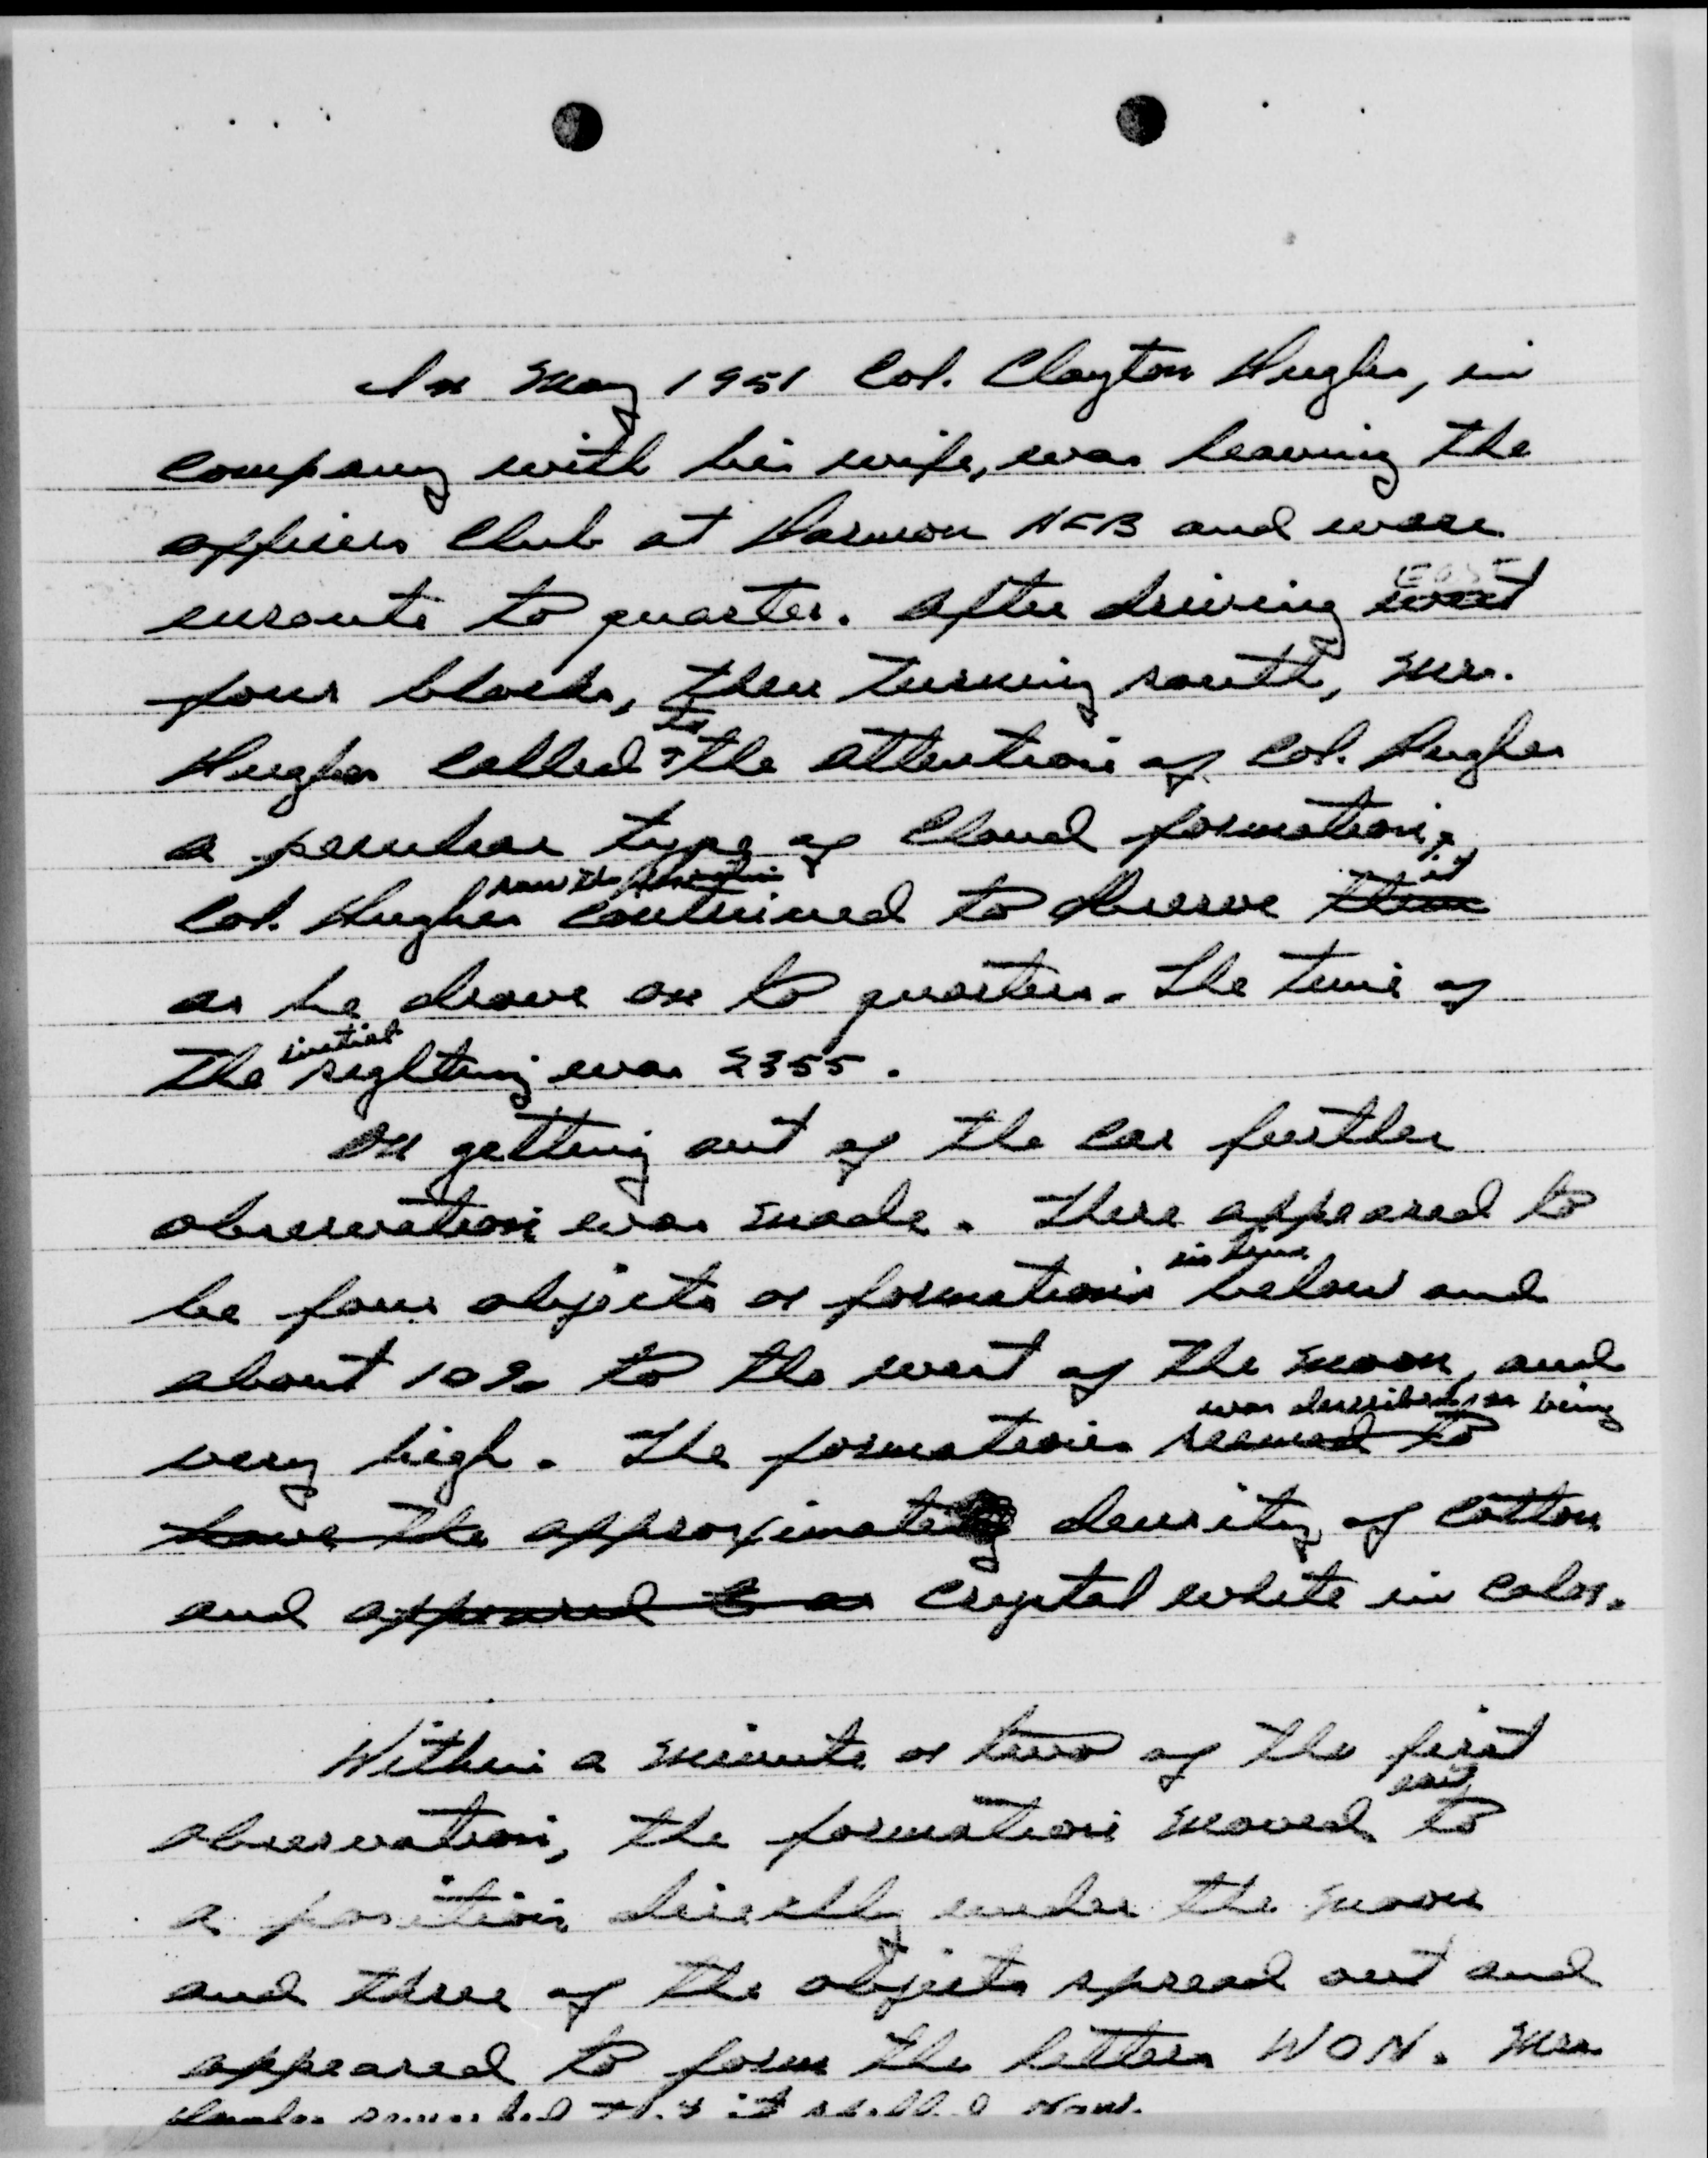 In May 1951 Col. Clayton Hughes, in
company with his wife, was leaving the
officers Club at Harmon AFB and were
enroute to quarters. After driving EAST west
four blocks, then turning south, Mrs.
Hughes called to the attention of Col. Hughes
a peculiar type of cloud formation.
Col. Hughes saw the formation continued to observe them it
as he drove on to quarters. The time of
the initial sighting was 2355.
On getting out of the car further
observation was made. There appeared to
be four objects or formations in line below and
about 10° to the west of the moon, and
very high. The formations was described as being seemed to
have the approximately density of cotton
and appeared to as crystal white in color.
Within a minute or two of the first
observation, the formation moved east to
a position directly under the moon
and three of the objects spread out and
appeared to form the letters WON. Mrs.
Hughes remarked that it spelled Now.